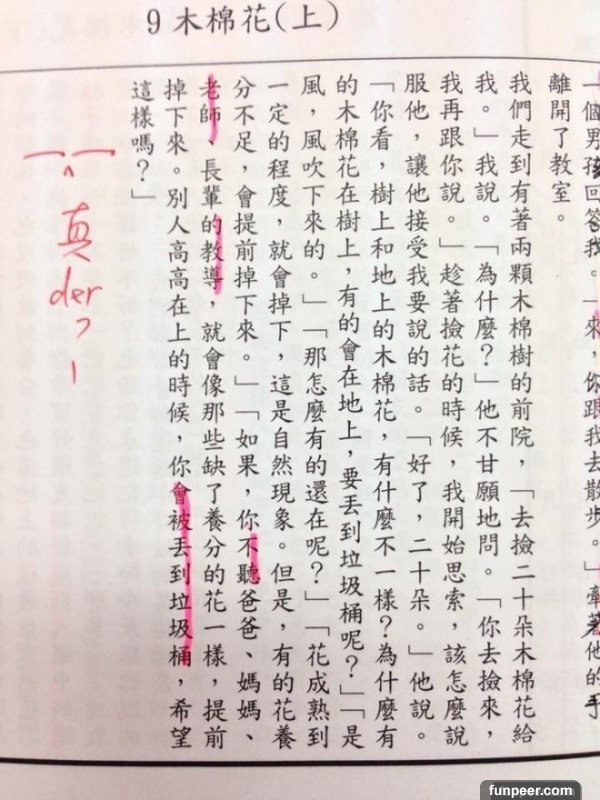 9 木棉花(上)
一個男孩回答我。「來，你跟我去散步。」牽著他的手
離開了教室。
我們走到有著兩顆木棉樹的前院，「去撿二十朵木棉花給
我。」我說。「為什麼？」他不甘願地問。「你去撿來，
我再跟你說。」趁著撿花的時候，我開始思索，該怎麼說
服他，讓他接受我要說的話。「好了，二十朵。」他說。
「你看，樹上和地上的木棉花，有什麼不一樣？為什麼有
的木棉花在樹上，有的會在地上，要丟到垃圾桶呢？」「是
風，風吹下來的。」「那怎麼有的還在呢？」「花成熟到
一定的程度，就會掉下，這是自然現象。但是，有的花養
分不足，會提前掉下來。」「如果，你不聽爸爸、媽媽、
老師、長輩的教導，就會像那些缺了養分的花一樣，提前
掉下來。別人高高在上的時候，你會被丟到垃圾桶，希望
這樣嗎？」
真der
funpeer.com